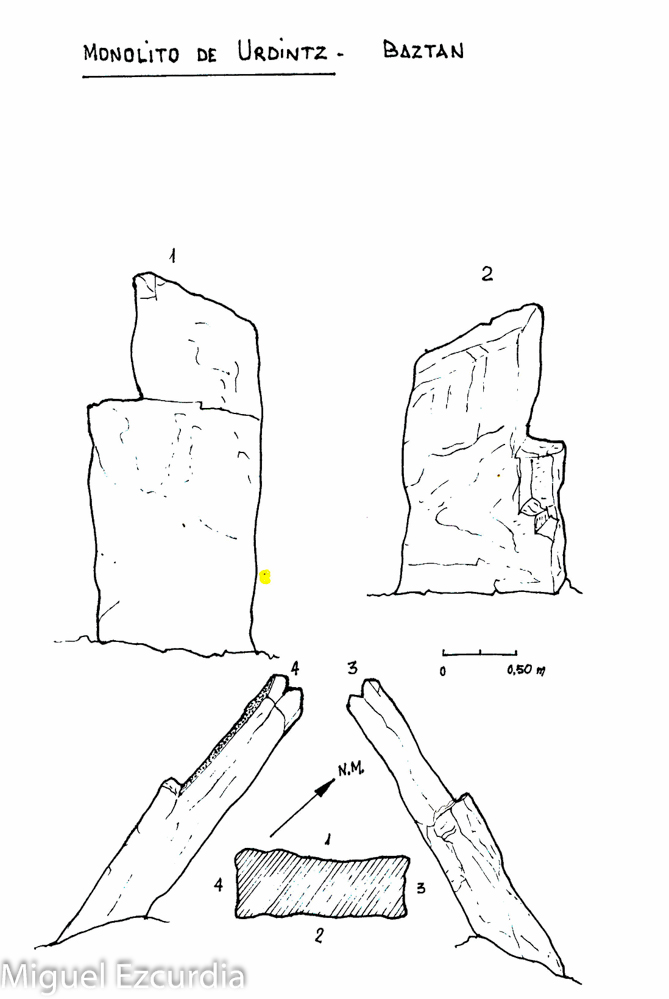 MONOLITO DE URDINTZ - BAZTAN
1
2
0 0,50 m
4 3
N.M.
1
4 3
2
Miguel Ezcurdia